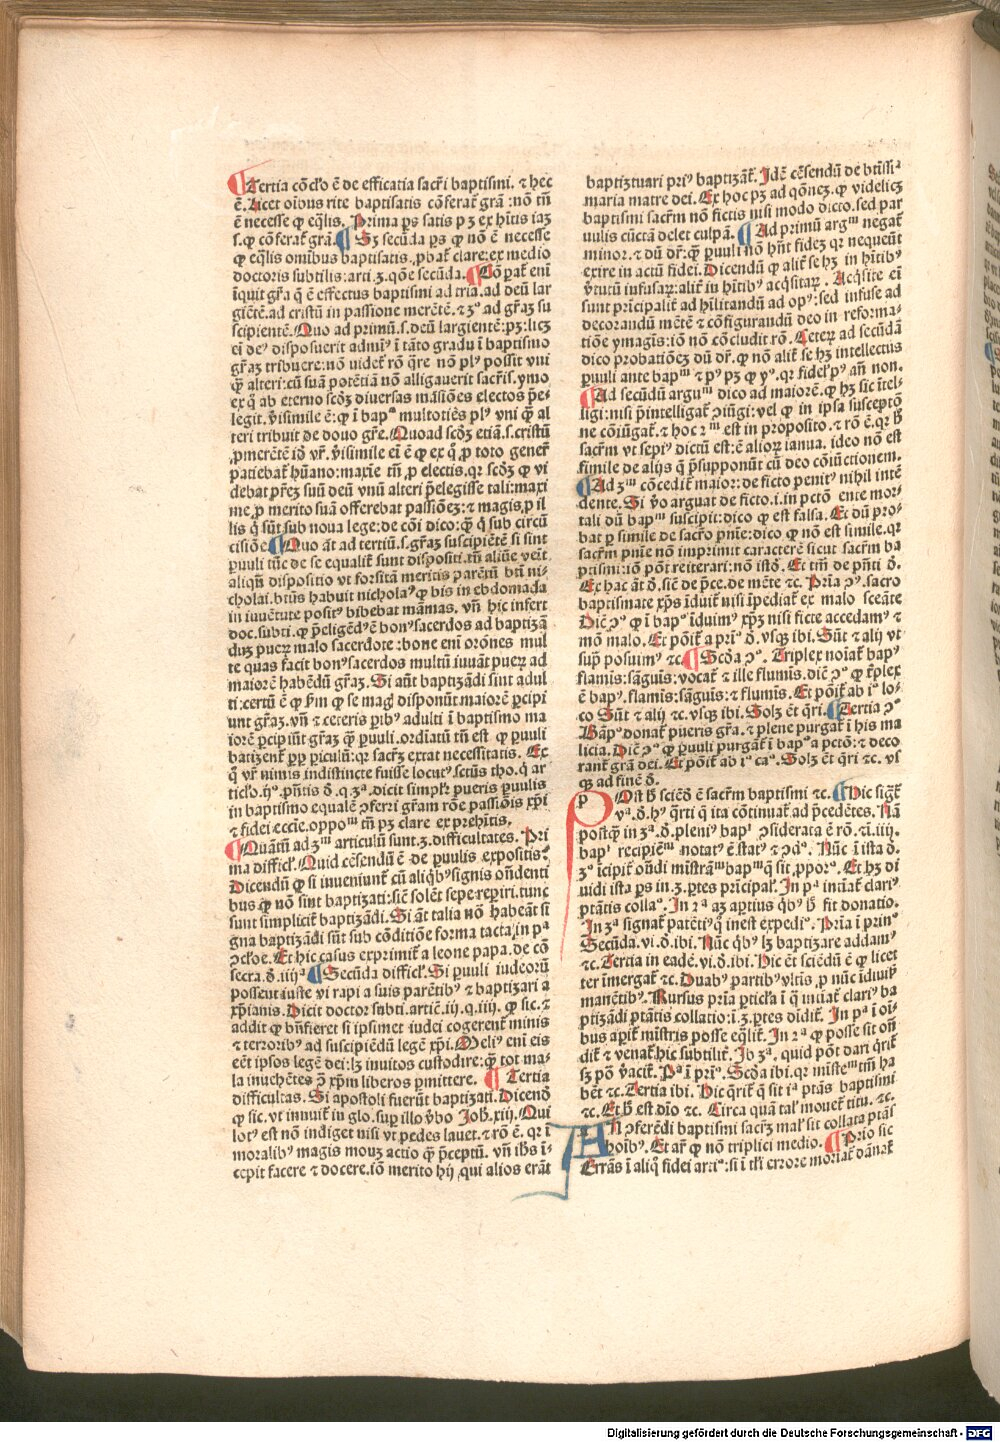 Tertia cōcło ē de efficatia sacri baptismi. ⁊ hec
ē. Licet oībus rite baptisatis cōferať grā : nō tn̄
ē necesse ꝙ eq̄lis. Prima ps satis pꝫ ex hītis iaꝫ
s. ꝙ cōferať grā. Sꝫ secūda ps ꝙ nō ē necesse
ꝙ eq̄lis omībus baptisatis. ꝓbať clare: ex medio
doctoris subtilis: arti. ꝫ. qōne secūda. Cō pať enī
īquit gr̄a q̄ ē effectus baptismi ad tria. ad deū lar
giētē. ad cristū in passione merētē. ⁊ ꝫº ad gr̄aꝫ su
scipientē. Quo ad primū. s. deū largientē: pꝫ: licꝫ
ei deꝰ disposuerit adniꝰ i tāto gradu i baptismo
gr̄aꝫ tribuere: nō videť rō q̄re nō plꝰ possit vni
q̄ꝫ alteri: cū suā potētiā nō alligauerit sacr̄is. ymo
ex q̄ ab eterno scd̄ꝫ diuersas māsiōes electos p̄e
legit. v̓isimile ē: ꝙ i bapº multotiēs plꝰ vni q̄ꝫ al
teri tribuit de dono gr̄e. Quoad scd̄ꝫ etiā. s. cristū
ꝓmerētē id̓ vř. v̓isimile ei ē ꝙ ex q̄ ꝓ toto gener̄
patiebať hūano: maxīe tn̄ ꝓ electis. qꝛ scd̄ꝫ ꝙ vi
debat pr̄eꝫ suū deū vnū alteri p̄elegisse tali: maxi
me ꝓ merito suā offerebat passiōeꝫ: ⁊ magis ꝓ il
lis q̄ sūt sub noua lege: de cōi dico: q̄ꝫ q̄ sub circū
cisiōe. Quo āt ad tertiū. s. gr̄aꝫ suscipiētē si sint
ꝑuuli tūc de se equaliť sunt dispositi. xn̄ aliūe veīt
aliqn̄ dispositio vt forsitā meritis parētū bt̄i ni-
cholai. bt̄us habuit nicholaꝰ ꝙ bis in ebdomada
in iuuētute positꝰ bibebat māmas. vn̄ hic infert
doc. subti. ꝙ p̄eligēdꝰ ē bonꝰ sacerdos ad baptizā
duꝫ pueꝝ malo sacerdote: bone enī orōnes mul
te quas facit bonꝰ sacerdos multū iuuāt pueꝝ ad
maiorē habēdū gr̄aꝫ. Si aūt baptizādi sint adul
ti: certū ē ꝙ ẜm ꝙ se magꝭ disponūt maiorē ꝑcipi
unt gr̄aꝫ. vn̄ ⁊ ceteris ꝑibꝰ adulti ī baptismo ma
iorē ꝑcipiūt gr̄aꝫ q̄ꝫ ꝑuuli. ordīatū tn̄ est ꝙ ꝑuuli
batizenť ꝓp̄ piculū: qꝛ sacr̄ꝫ extat necessitatis. Ex
q̄ vř nimis indistincte fuisse locutꝰ sc̄tus tho. q̄ ar
ticło. q̄º. pn̄tis d̓. q. ꝫª. dicit simplr̄ pueris ꝑuulis
in baptismo equalē ↄferri gr̄am rōe passiōis xp̄i
⁊ fidei eccīe. oppoᵐ tn̄ pꝫ clare ex preh̄itis.
Quātū ad ꝫᵐ articulū sunt. ꝫ. difficultates. Pri
ma difficł. Quid cēsendū ē de ꝑuulis expositis:
Dicendū ꝙ si inueniunť cū aliqͥbꝰ signis on̄denti
bus ꝙ nō sint baptizati: sic̄ solēt sepe reꝑiri. tunc
sunt simpliciť baptizādi. Si āt talia nō habeāt si
gna baptizādi sūt sub cōditiōe forma tacta in pª
ↄcłoe. Et hic casus exprimiť a leone papa. de cō
secra. d̓. iiiiª Secūda difficł. Si ꝑuuli iudeorū
possent iuste vi rapi a suis parētibꝰ ⁊ baptizari a
xp̄ianis. Dicit doctor subti. artic̄. iij. q. iiij. ꝙ sic. ⁊
addit ꝙ bn̄fieret si ipsimet iudei cogerent̄ minis
⁊ terroribꝰ ad suscipiēdū legē xp̄i. Meliꝰ enī eis
eēt ipsos legē dei: lꝫ inuitos custodire: q̄ꝫ tot ma-
la inuehētes ↄ̄ xp̄m liberos ꝑmittere. Tertia
difficultas. Si apostoli fuerūt baptizati. Dicend̓
ꝙ sic. vt innuiť in glo. sup illo v̓bo Joh̄. xiij. Qui
lotꝰ est nō indiget nisi vt pedes lauet. ⁊ rō ē. qꝛ i
moralibꝰ magis mouꝫ actio q̄ꝫ p̄ceptū. vn̄ ih̄s i-
cepit facere ⁊ docere. iō merito hij qui alios erāt
baptiꝫtuari priꝰ baptizāť. Idē cēsendū de bt̄issiª
maria matre dei. Ex hoc pꝫ ad qōneꝫ. ꝙ videlicꝫ
baptismi sacr̄m nō fictis nisi modo dicto. sed par
uulis cūctā delet culpā. Ad primū argᵐ negať
minor. ⁊ dū dř: ꝙ ꝑuuli nō hn̄t fideꝫ qꝛ nequeūt
exire in actū fidei. Dicendū ꝙ aliť se hꝫ in hītibꝰ
v̓tutū infusaꝝ: aliť in hītibꝰ acq̄sitaꝝ. Acq̄site ei
sunt prīcipaliť ad hīlitandū ad opꝰ: sed infuse ad
decorandū mētē ⁊ cōfigurandū deo in reforma-
tiōe ymagīs: iō nō cōcludit rō. Ceteꝝ ad secūdā
dico probatiōeꝫ dū dř. ꝙ nō aliť se hꝫ intellectus
ꝑuuli ante bapᵐ ⁊ pꝰ pꝫ ꝙ yº. qꝛ fidelꝭ pꝰ an̄ non.
Ad secūdū arguᵐ dico ad maiorē. ꝙ hꝫ sic ītel-
ligi: nisi p̄intelligať ↄiūgi: vel ꝙ in ipsa susceptō
ne cōiūgať. ⁊ hoc 2ᵐ est in proposito. ⁊ rō ē. qꝛ h̄
sacr̄m vt sepiꝰ dictū est: ē alioꝝ ianua. ideo nō est
simile de alijs q̄ p̄supponūt cū deo cōiūctionem.
Ad ꝫᵐ cōcediť maior: de ficto penitꝰ nihil intē
dente. Si v̓o arguat de ficto. i. in pctō ente mor-
tali dū bapᵐ suscipit: dico ꝙ est falsa. Et dū pro-
bať ꝑ simile de sacro pn̄ie: dico ꝙ nō est simile. qꝛ
sacr̄m pn̄ie nō imprimit caracterē sicut sacr̄m ba
ptismi: iō pōt reiterari: nō istd̓. Et tm̄ de pn̄ti d̓.
Ex hac āt d̓. sic̄ de p̄ce. de mēte ⁊c. Prīa ↄº. sacro
baptismate xp̄s īduiť nisi īpediať ex malo sceāte
Dic̄ ↄº ꝙ i bapº īduimꝰ xp̄ꝫ nisi ficte accedamꝰ ⁊
mō malo. Et pōiť a priº d̓. vsqꝫ ibi. Sūt ⁊ alij vt
sup̄ posuimꝰ ⁊c. Scd̓a ↄº. Triplex noīať bapꝰ
flamīs: sāguīs: vocať ⁊ ille flumīs. dic̄ ↄº ꝙ tr̓plex
ē bapꝰ. flamīs: sāguīs: ⁊ flumīs. Et pōiť ab iº lo-
co Sūt ⁊ alij ⁊c. vsqꝫ ibi. Solꝫ ēt q̄ri. Tertia ↄº
Bāpº donať pueris gr̄a. ⁊ plene purgať i his ma
licia. Dic̄ ↄº ꝙ ꝑuuli purgať i bapº a pctō: ⁊ deco
rant̄ gr̄a dei. Et pōiť ab iº caº. Solꝫ ēt q̄ri ⁊c. vs
qꝫ ad finē d̓.
POst h̄ sciēd̓ ē sacr̄m baptismi ⁊c. Hic sigť
vª. d̓. hꝰ q̄rti q̄ ita cōtinuať ad p̄cedētes. Nā
postq̄ꝫ in ꝫª. d̓. pleniꝰ bapͥ ↄsiderata ē rō. tā. iiij.
bapͥ recipiēᵐ notatꝰ ē statꝰ ⁊ ↄdº. Nūc i ista d̓.
ꝫº īcipiť on̄di mīstrāᵐ bapᵐ q̄ sit ꝓporº. Et hꝫ di
uidi ista ps in. ꝫ. ꝑtes prīcipał. In pª īnuāť clariꝰ
ptātis collaº. In 2ª aꝫ aptius qͥbꝰ h̄ fit donatio.
In ꝫª signať patētiꝰ q̄ inest expediº. Prīa i prīnº
Secūda. vi. d̓. ibi. Nūc qͥbꝰ lꝫ baptizare addamꝰ
⁊c. Tertia in eadē. vi. d̓. ibi. Hic ēt sciēdū ē ꝙ licet
ter īmergať ⁊c. Duabꝰ partibꝰ vltīs, ꝓ nūc īdiuīs
manētibꝰ. Rursus prīa ꝑticła i q̄ īnuāť clariꝰ ba
ptizādi ptātis collatio: i. ꝫ. ꝑtes diīdiť. In pª i oī-
bus apiť mīstris posse eq̄liť. In 2ª ꝙ posse sit on̄
diť ⁊ venať hic subtiliť. Ib ꝫª. quid pōt dari q̄riť
sꝫ pō v̓aciť. Pª i prīº. Scd̓a ibi. qꝛ mīsteᵐ tm̄ ha
bēt ⁊c. Tertia ibi. Hic q̄riť q̄ sit iª ptās baptismi
⁊c. Et h̄ est dīo ⁊c. Circa quā talꝭ moueť titu. ⁊c.
AN ↄferēdi baptismi sacr̄ꝫ malꝭ sit collata ptās
hoībꝰ. Et ař ꝙ nō triplici medio. Prīo sic
Errās i aliqͦ fidei artiº: si i tali errore moriať dānať
Digitalisierung gefördert durch die Deutsche Forschungsgemeinschaft - DFG